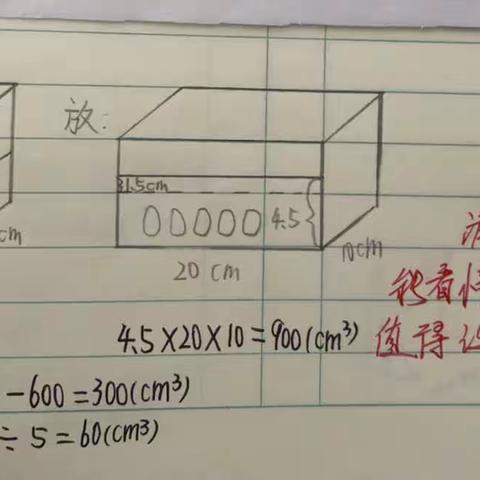 放:
1.5cm
00000 4.5
cm
10cm
20 cm
能看
4.5×20×10=900(cm³) 值得
-600=300(cm³)
÷5=60(cm³)